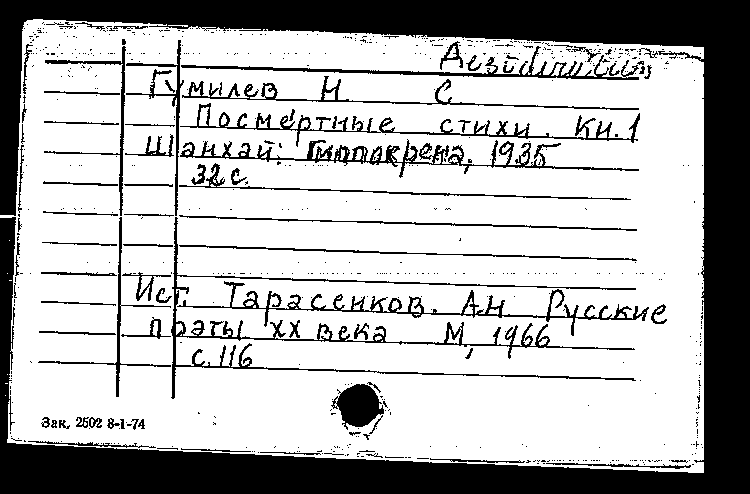 Desideratum
Гумилев Н. С.
Посмертные стихи. Кн. 1
Шанхай: Гиппокрена, 1935
32 с.
Ист. Тарасенков. А.Н Русские
поэты ХХ века М, 1966
с. 116
Зак. 2502 8-1-74